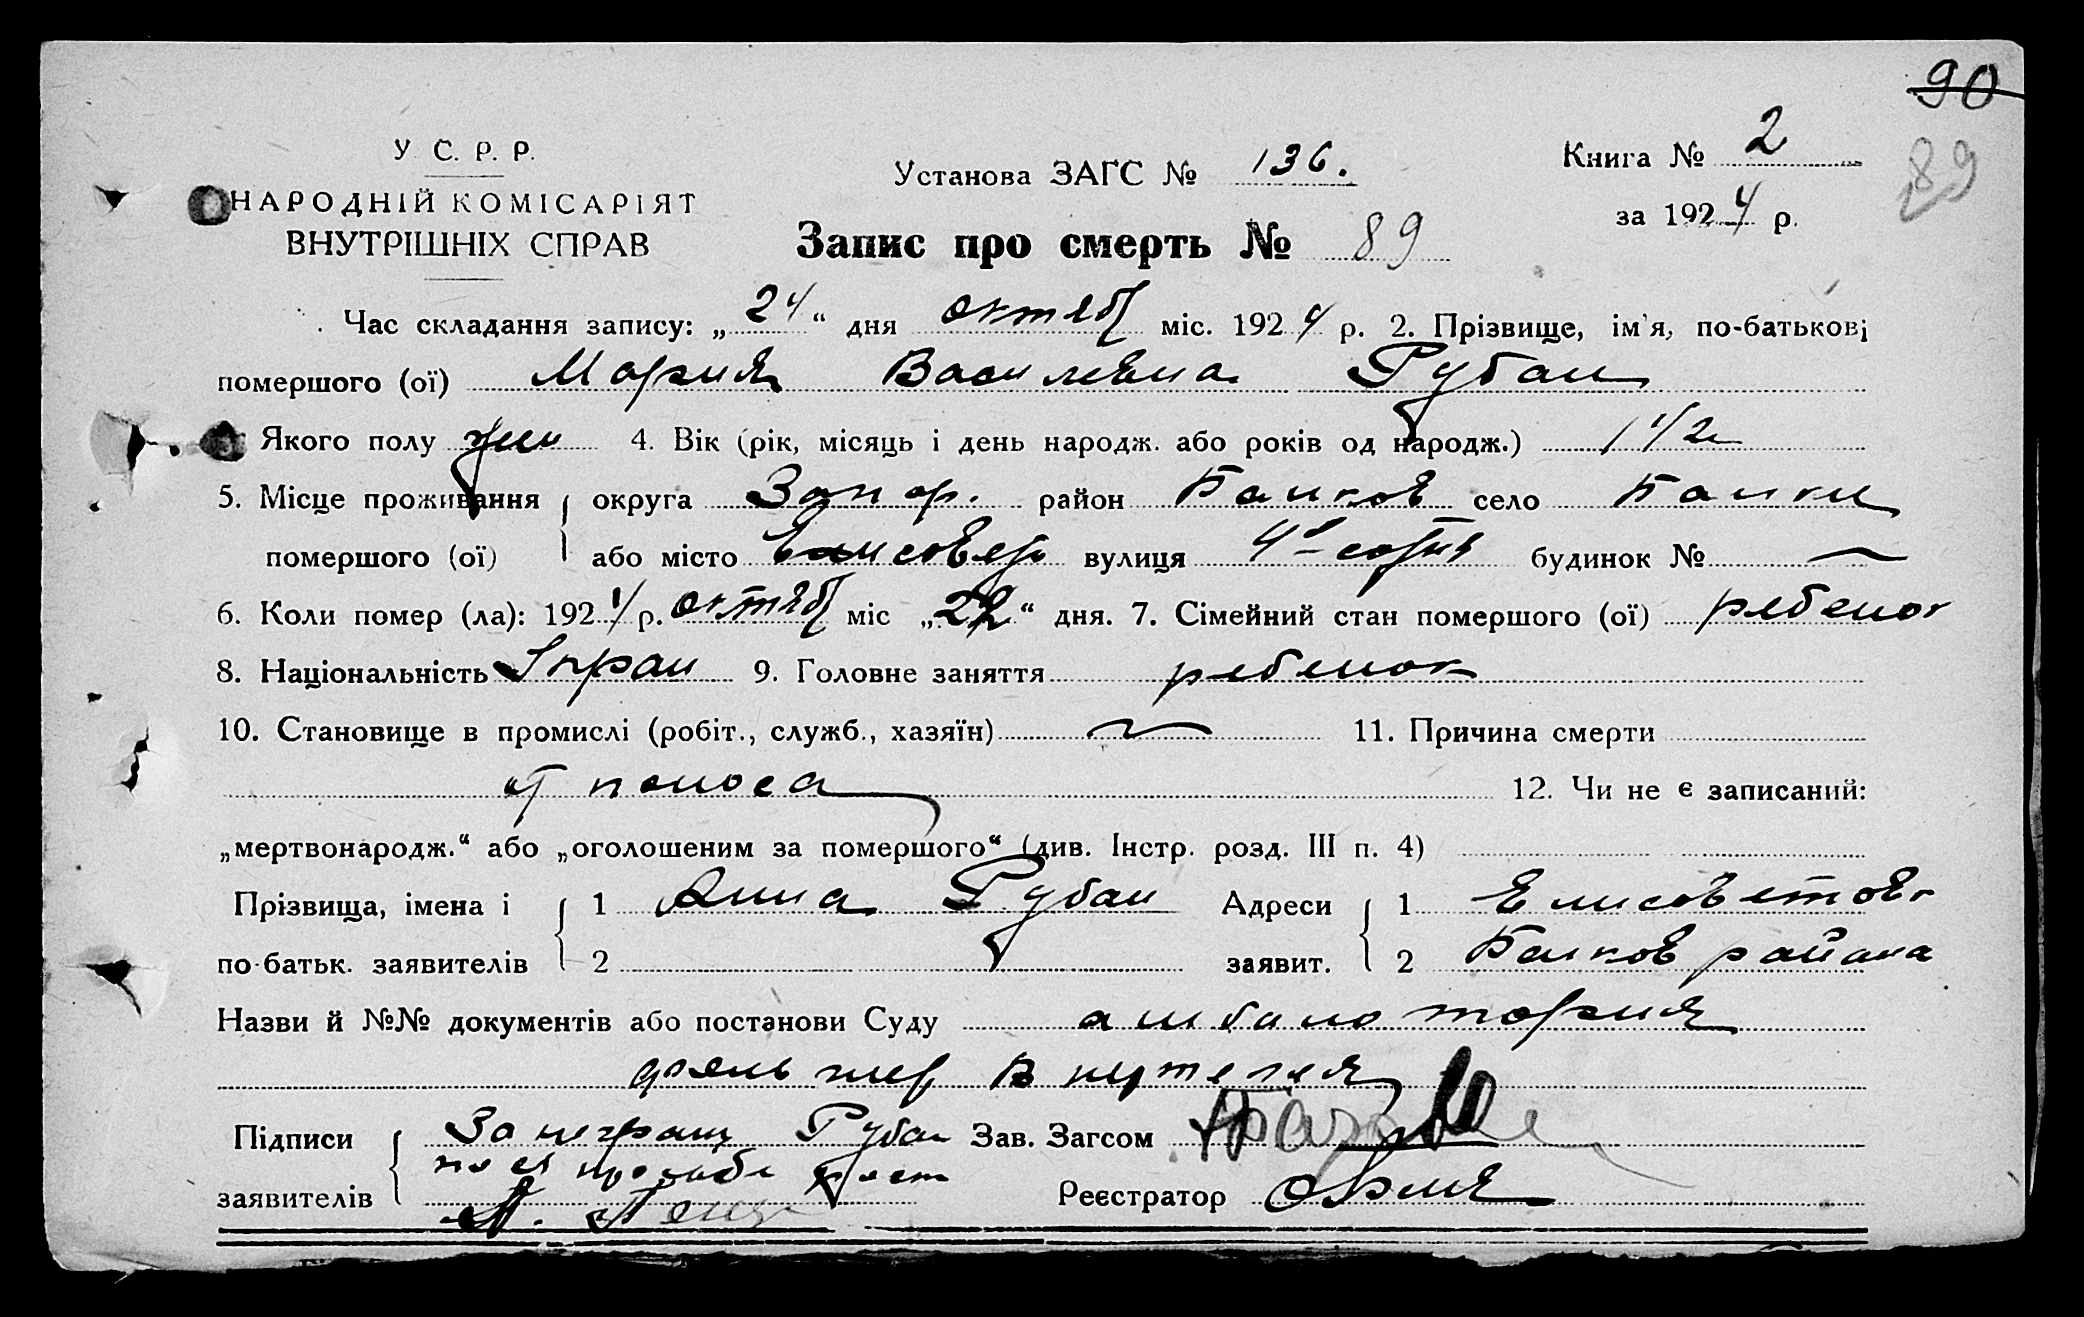 90
89
У. С. Р. Р.
НАРОДНІЙ КОМІСАРІЯТ
ВНУТРІШНІХ СПРАВ
Установа ЗАГС № 136.
Книга № 2
за 1924 р.
Запис про смерть № 89
Час складання запису: „24“ дня октяб міс. 1924 р. 2. Прізвище, ім'я, по-батькові
помершого (ої) Мария Васильевна Рубан
Якого полу жен 4. Вік (рік, місяць і день народж. або років од народж.) 1 1/2
5. Місце проживання округа Запор. район Балков село Балки
помершого (ої) або місто вулиця 4я сотня будинок № —
6. Коли помер (ла): 1924 р. октяб міс „22“ дня. 7. Сімейний стан помершого (ої) ребенок
8. Національність Украи 9. Головне заняття ребенок
10. Становище в промислі (робіт., служб., хазяїн) — 11. Причина смерти
от поноса 12. Чи не є записаний:
„мертвонародж.“ або „оголошеним за помершого“ (див. Інстр. розд. III п. 4)
Прізвища, імена і 1 Анна Рубан Адреси 1 Елисоветовк
по-батьк. заявителів 2 заявит. 2 Балков района
Назви й №№ документів або постанови Суду амбулатория
фельшер
Підписи За неграм Рубан Зав. Загсом
по ея просьбе расп
заявителів Реєстратор